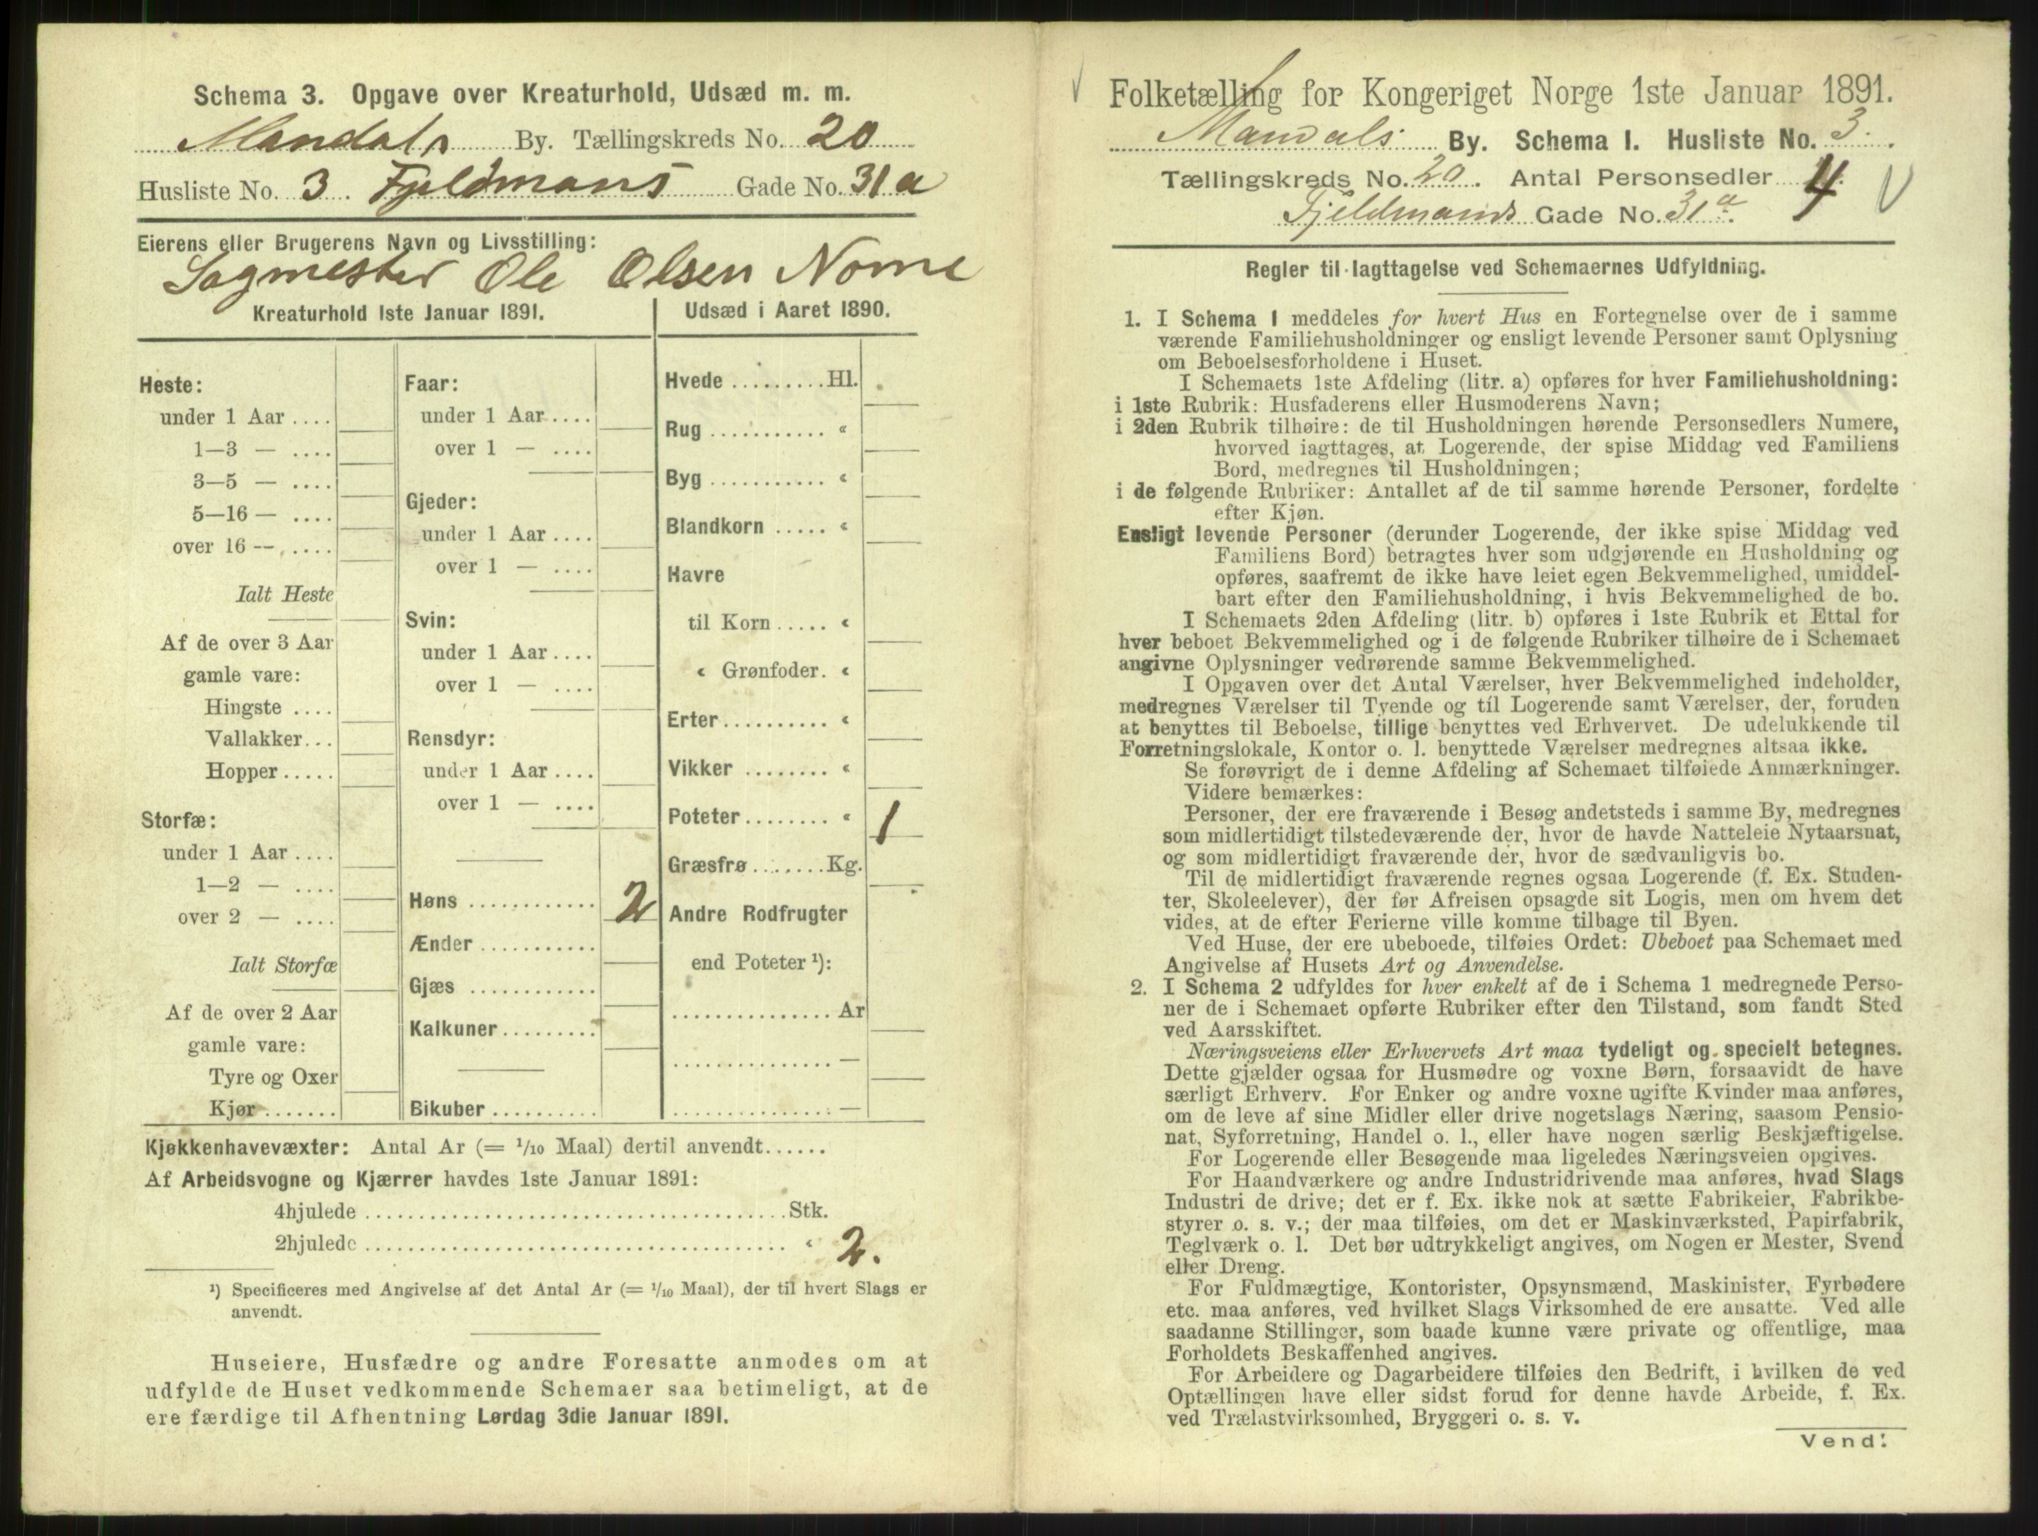 Schema 3. Opgave over Kreaturhold, Udsæd m. m.
Mandals By. Tællingskreds No. 20
Husliste No. 3 Fjeldmans Gade No. 31 a
Eierens eller Brugerens Navn og Livsstilling:
Sagmester Ole Olsen Nome
Kreaturhold 1ste Januar 1891.
Heste:
under 1 Aar ....
1—3 — ....
3—5 — ....
5—16 — ....
over 16 — ....
Ialt Heste
Af de over 3 Aar
gamle vare:
Hingste ....
Vallakker...
Hopper.....
Storfæ:
under 1 Aar ....
1—2 — ....
over 2 — ....
Ialt Storfæ
Af de over 2 Aar
gamle vare:
Tyre og Oxer
Kjør.......
Faar:
under 1 Aar ....
over 1 — ....
Gjeder:
under 1 Aar ....
over 1 — ....
Svin:
under 1 Aar ....
over 1 — ....
Rensdyr:
under 1 Aar ....
over 1 — ....
Høns ............ 2
Ænder ...........
Gjæs ............
Kalkuner.........
Bikuber ..........
Udsæd i Aaret 1890.
Hvede .........Hl.
Rug ........... «
Byg ........... «
Blandkorn ..... «
Havre
til Korn ..... «
« Grønfoder. «
Erter.......... «
Vikker ........ «
Poteter........ « 1
Græsfrø .......Kg.
Andre Rodfrugter
end Poteter ¹):
...............Ar
............... —
............... —
Kjøkkenhavevæxter: Antal Ar (= 1/10 Maal) dertil anvendt......
Af Arbeidsvogne og Kjærrer havdes 1ste Januar 1891:
4hjulede .......................................Stk.
2hjulede ....................................... « 2.
¹) Specificeres med Angivelse af det Antal Ar (= 1/10 Maal), der til hvert Slags er
anvendt.
Huseiere, Husfædre og andre Foresatte anmodes om at
udfylde de Huset vedkommende Schemaer saa betimeligt, at de
ere færdige til Afhentning Lørdag 3die Januar 1891.
Folketælling for Kongeriget Norge 1ste Januar 1891.
Mandals By. Schema I. Husliste No. 3.
Tællingskreds No. 20. Antal Personsedler 4
Fjeldmands Gade No. 31 a.
Regler til Iagttagelse ved Schemaernes Udfyldning.
1. I Schema I meddeles for hvert Hus en Fortegnelse over de i samme
værende Familiehusholdninger og ensligt levende Personer samt Oplysning
om Beboelsesforholdene i Huset.
I Schemaets 1ste Afdeling (litr. a) opføres for hver Familiehusholdning:
i 1ste Rubrik: Husfaderens eller Husmoderens Navn;
i 2den Rubrik tilhøire: de til Husholdningen hørende Personsedlers Numere,
hvorved iagttages, at Logerende, der spise Middag ved Familiens
Bord, medregnes til Husholdningen;
i de følgende Rubriker: Antallet af de til samme hørende Personer, fordelte
efter Kjøn.
Ensligt levende Personer (derunder Logerende, der ikke spise Middag ved
Familiens Bord) betragtes hver som udgjørende en Husholdning og
opføres, saafremt de ikke have leiet egen Bekvemmelighed, umiddel-
bart efter den Familiehusholdning, i hvis Bekvemmelighed de bo.
I Schemaets 2den Afdeling (litr. b) opføres i 1ste Rubrik et Ettal for
hver beboet Bekvemmelighed og i de følgende Rubriker tilhøire de i Schemaet
angivne Oplysninger vedrørende samme Bekvemmelighed.
I Opgaven over det Antal Værelser, hver Bekvemmelighed indeholder,
medregnes Værelser til Tyende og til Logerende samt Værelser, der, foruden
at benyttes til Beboelse, tillige benyttes ved Erhvervet. De udelukkende til
Forretningslokale, Kontor o. l. benyttede Værelser medregnes altsaa ikke.
Se forøvrigt de i denne Afdeling af Schemaet tilføiede Anmærkninger.
Videre bemærkes:
Personer, der ere fraværende i Besøg andetsteds i samme By, medregnes
som midlertidigt tilstedeværende der, hvor de havde Natteleie Nytaarsnat,
og som midlertidigt fraværende der, hvor de sædvanligvis bo.
Til de midlertidigt fraværende regnes ogsaa Logerende (f. Ex. Studen-
ter, Skoleelever), der før Afreisen opsagde sit Logis, men om hvem det
vides, at de efter Ferierne ville komme tilbage til Byen.
Ved Huse, der ere ubeboede, tilføies Ordet: Ubeboet paa Schemaet med
Angivelse af Husets Art og Anvendelse.
2. I Schema 2 udfyldes for hver enkelt af de i Schema 1 medregnede Perso-
ner de i Schemaet opførte Rubriker efter den Tilstand, som fandt Sted
ved Aarsskiftet.
Næringsveiens eller Erhvervets Art maa tydeligt og specielt betegnes.
Dette gjælder ogsaa for Husmødre og voxne Børn, forsaavidt de have
særligt Erhverv. For Enker og andre voxne ugifte Kvinder maa anføres,
om de leve af sine Midler eller drive nogetslags Næring, saasom Pensio-
nat, Syforretning, Handel o. l., eller have nogen særlig Beskjæftigelse.
For Logerende eller Besøgende maa ligeledes Næringsveien opgives.
For Haandværkere og andre Industridrivende maa anføres, hvad Slags
Industri de drive; det er f. Ex. ikke nok at sætte Fabrikeier, Fabrikbe-
styrer o. s. v.; der maa tilføies, om det er Maskinværksted, Papirfabrik,
Teglværk o. l. Det bør udtrykkeligt angives, om Nogen er Mester, Svend
eller Dreng.
For Fuldmægtige, Kontorister, Opsynsmænd, Maskinister, Fyrbødere
etc. maa anføres, ved hvilket Slags Virksomhed de ere ansatte. Ved alle
saadanne Stillinger, som baade kunne være private og offentlige, maa
Forholdets Beskaffenhed angives.
For Arbeidere og Dagarbeidere tilføies den Bedrift, i hvilken de ved
Optællingen have eller sidst forud for denne havde Arbeide, f. Ex.
ved Trælastvirksomhed, Bryggeri o. s. v.
Vend!